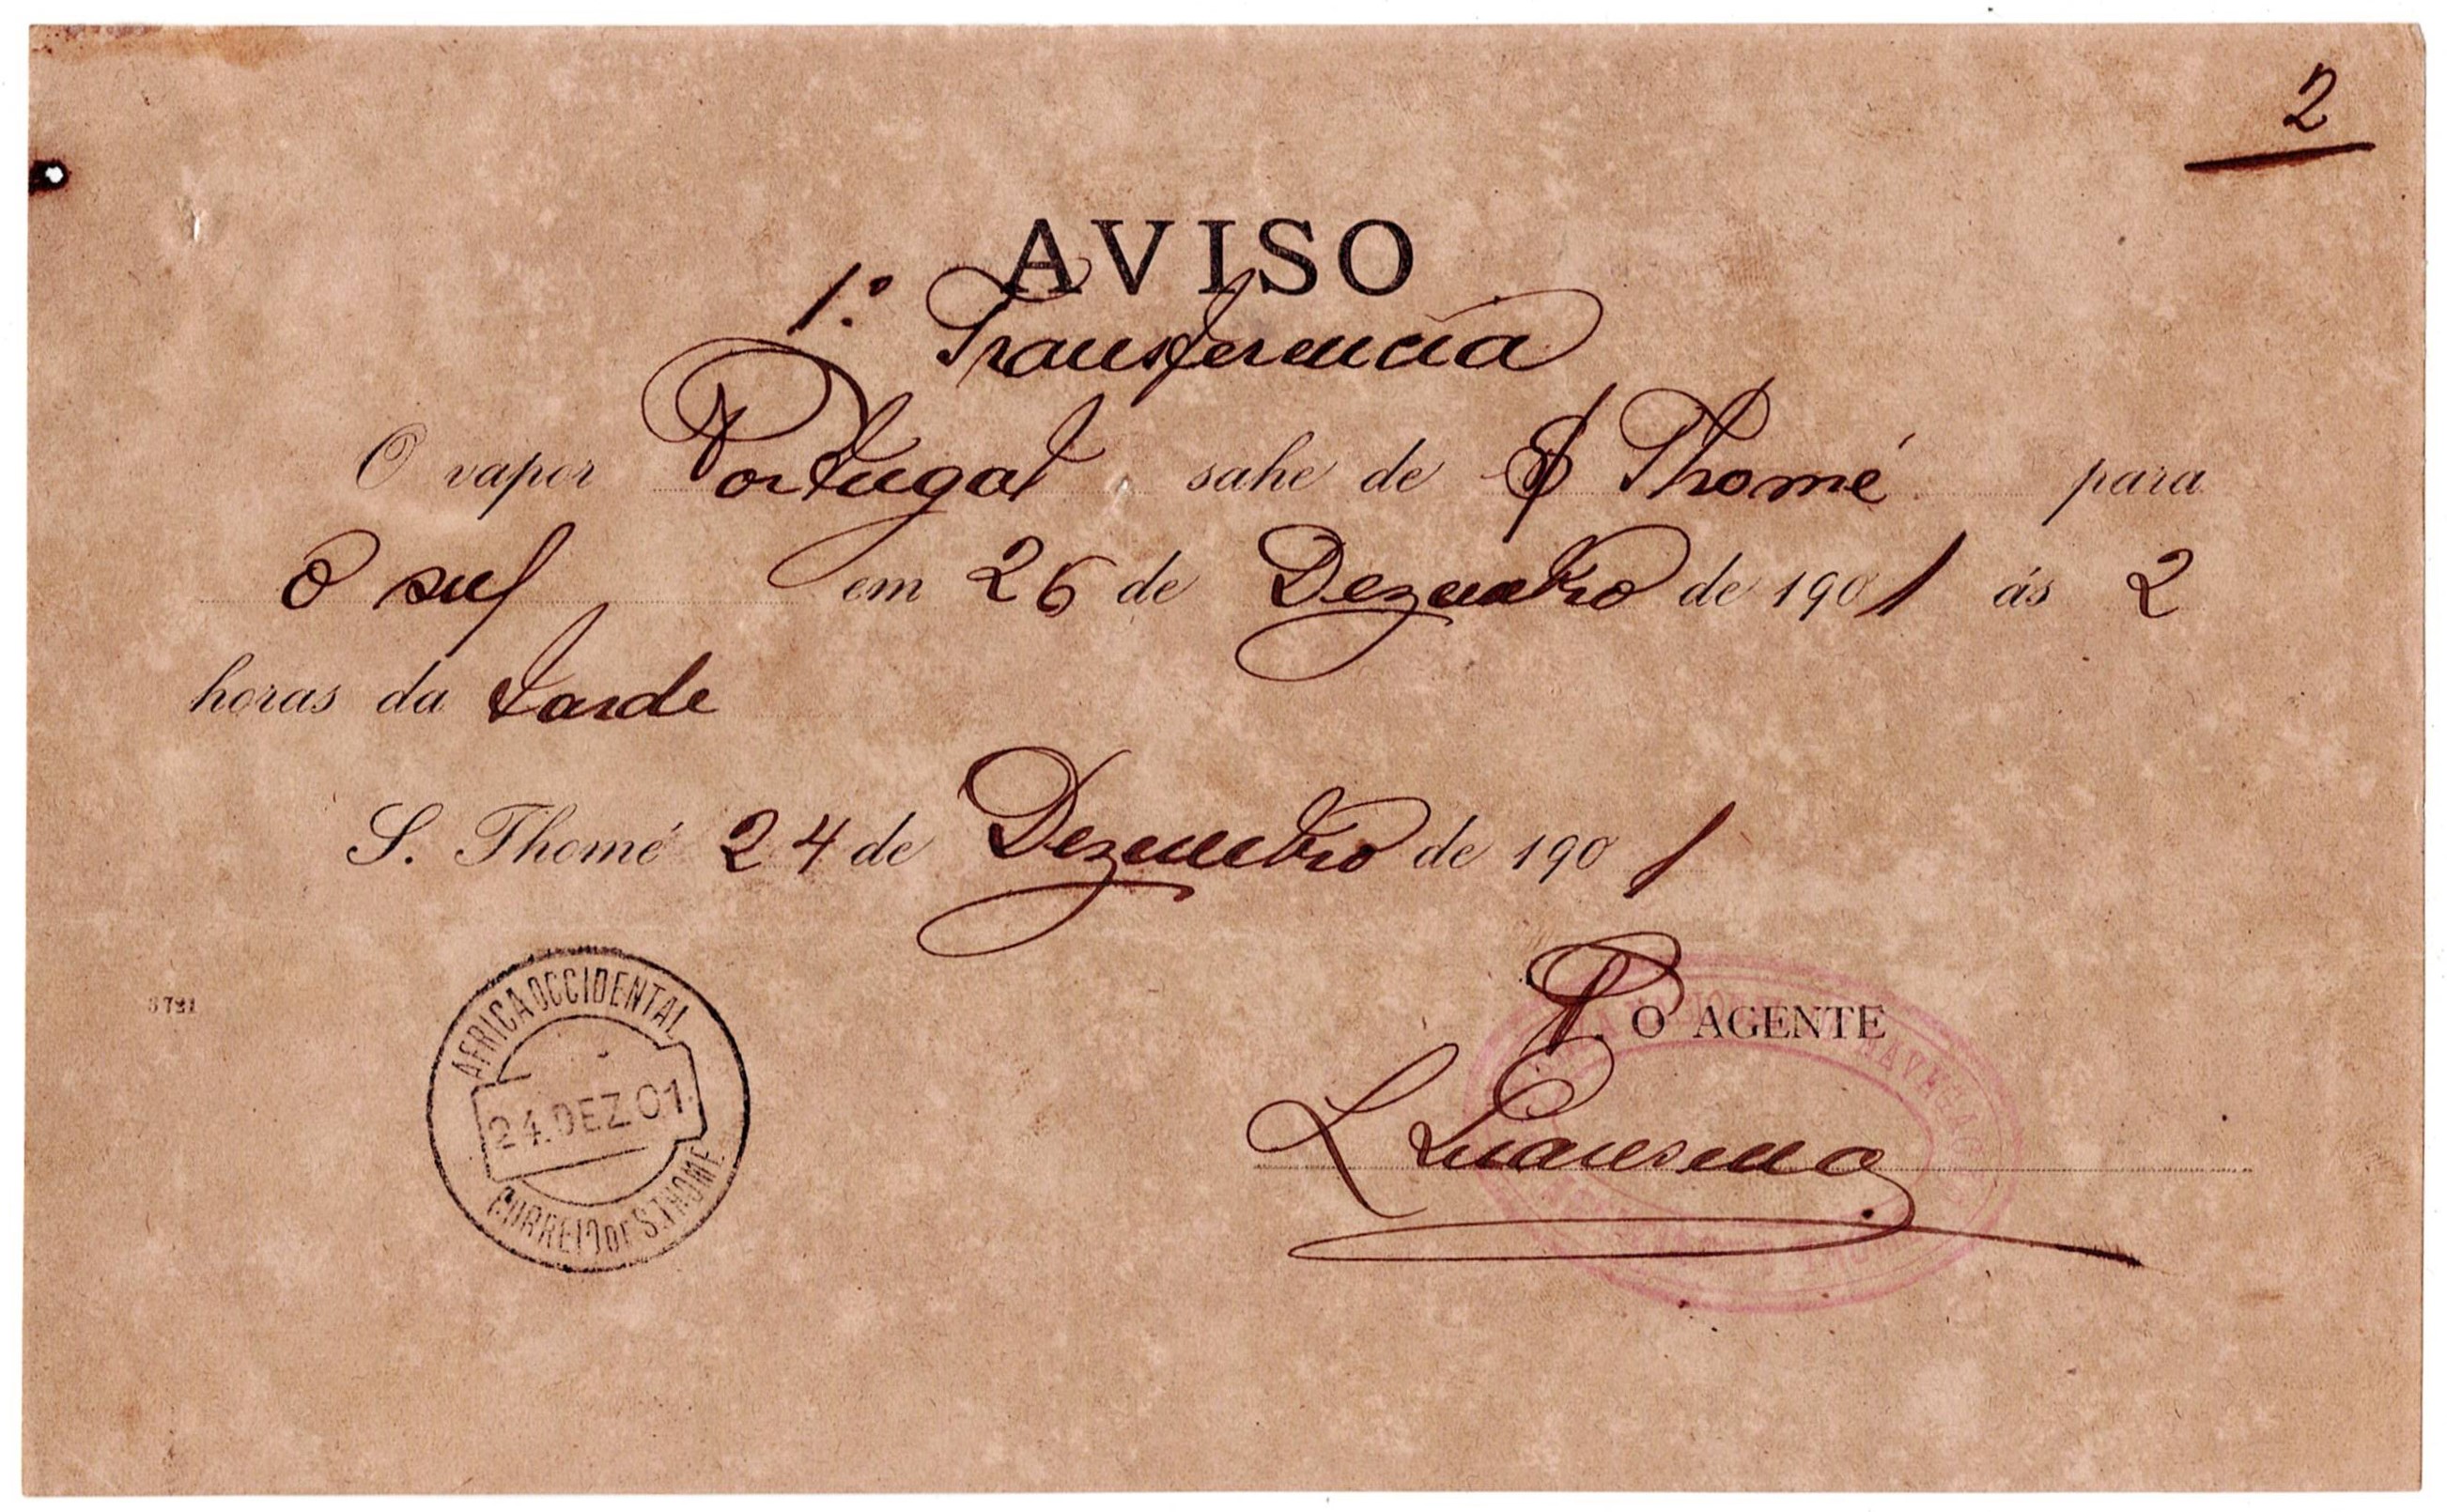 2
AVISO
1.º Transferencia
O vapor Portugal sahe de S Thomé para
o sul em 26 de Dezembro de 1901 ás 2
horas da tarde
S. Thomé 24 de Dezembro de 1901
AFRICA OCCIDENTAL
24.DEZ.01
CORREIO DE S.THOMÉ
P. O AGENTE
L